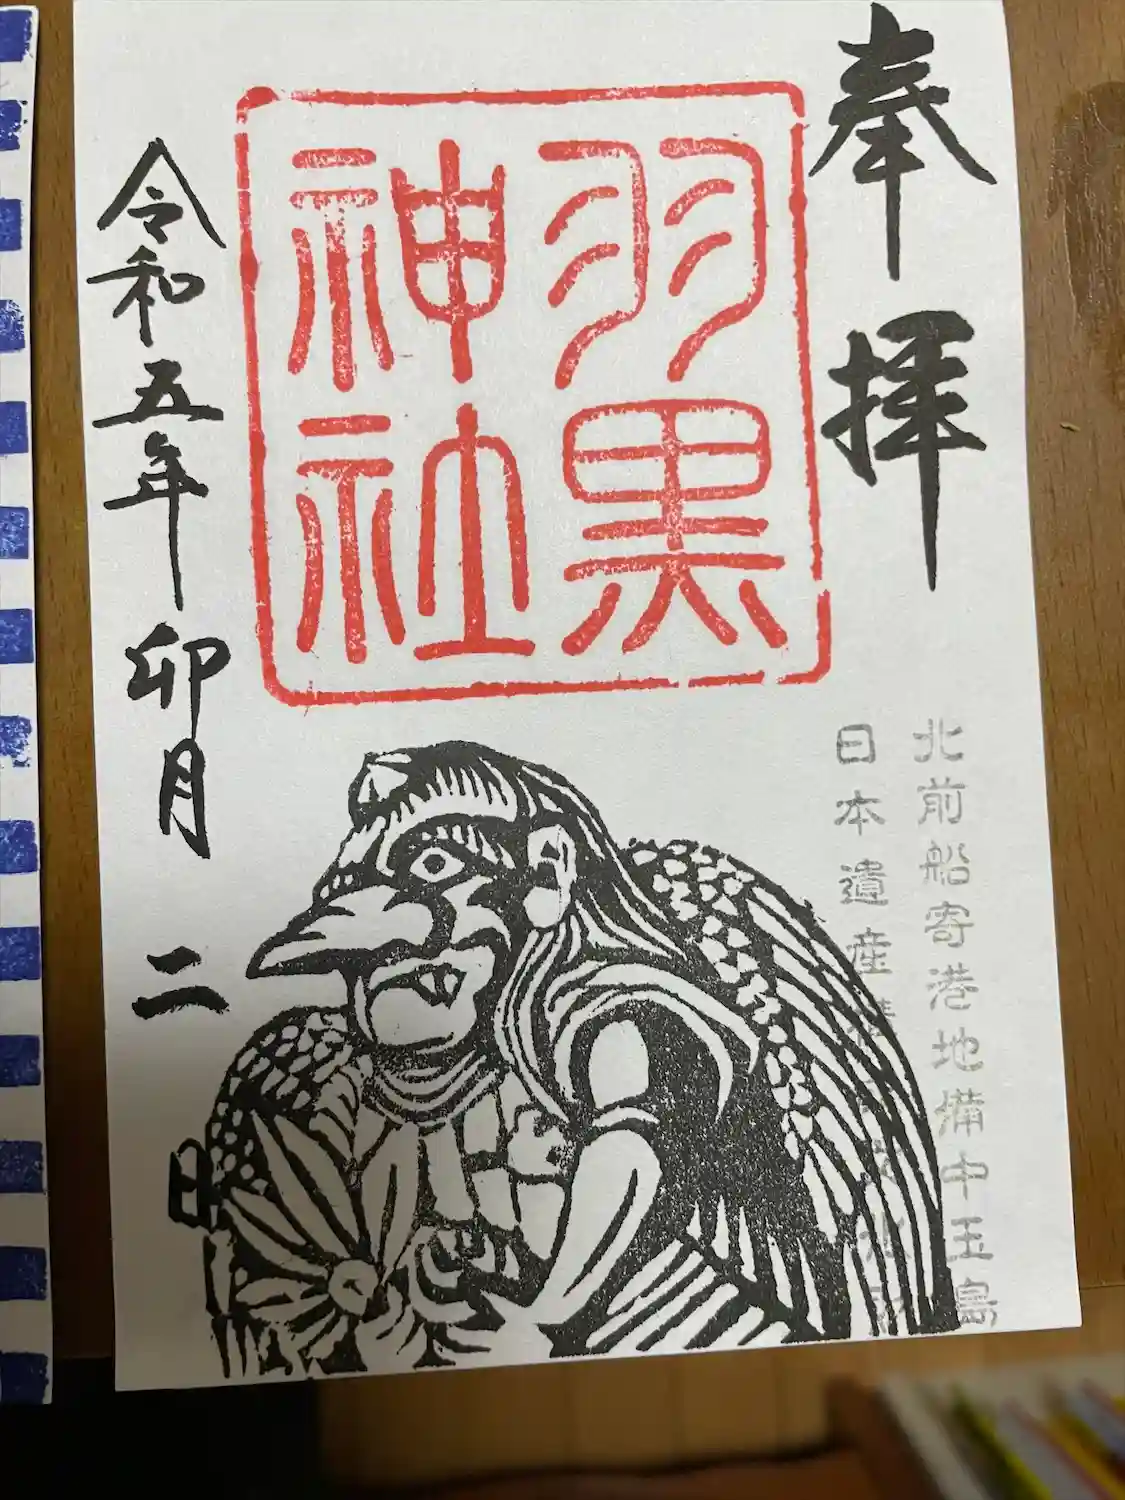 奉拝
羽黒
神社
令和五年卯月二
北前船寄港地備中玉島
日本遺産